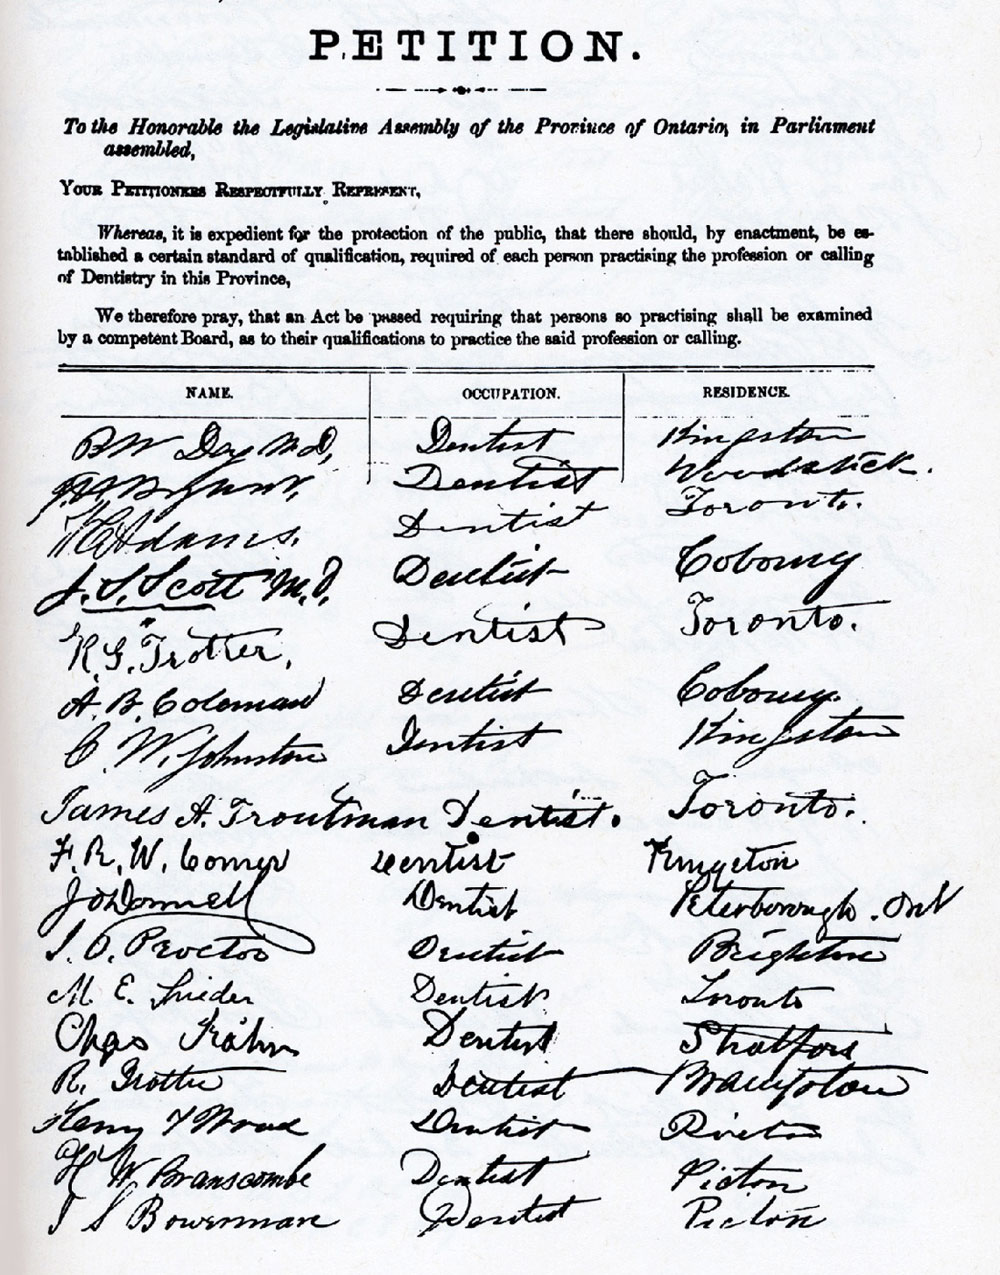 PETITION.
To the Honorable the Legislative Assembly of the Province of Ontario, in Parliament
assembled,
YOUR PETITIONERS RESPECTFULLY REPRESENT,
Whereas, it is expedient for the protection of the public, that there should, by enactment, be es-
tablished a certain standard of qualification, required of each person practising the profession or calling
of Dentistry in this Province,
We therefore pray, that an Act be passed requiring that persons so practising shall be examined
by a competent Board, as to their qualifications to practice the said profession or calling.
NAME. OCCUPATION. RESIDENCE.
B W Day M.D, Dentist Kingston
Dentist Woodstock.
Adams. Dentist Toronto.
J. S. Scott M.D, Dentist Cobourg
R. G. Trotter, Dentist Toronto.
A. B. Coleman Dentist Cobourg.
C. W. Johnston Dentist Kingston
James A. Troutman Dentist. Toronto.
F. R. W. Comer Dentist Kingston
J O'Donnell Dentist Peterborough. Ont
J. O. Proctor Dentist Brighton
M E. Snider Dentist Toronto
Chas Kahn Dentist Stratford
R. Trotter Dentist Brampton
Henry T Wood Dentist Picton
H W Branscombe Dentist Picton
J S Bowerman Dentist Picton